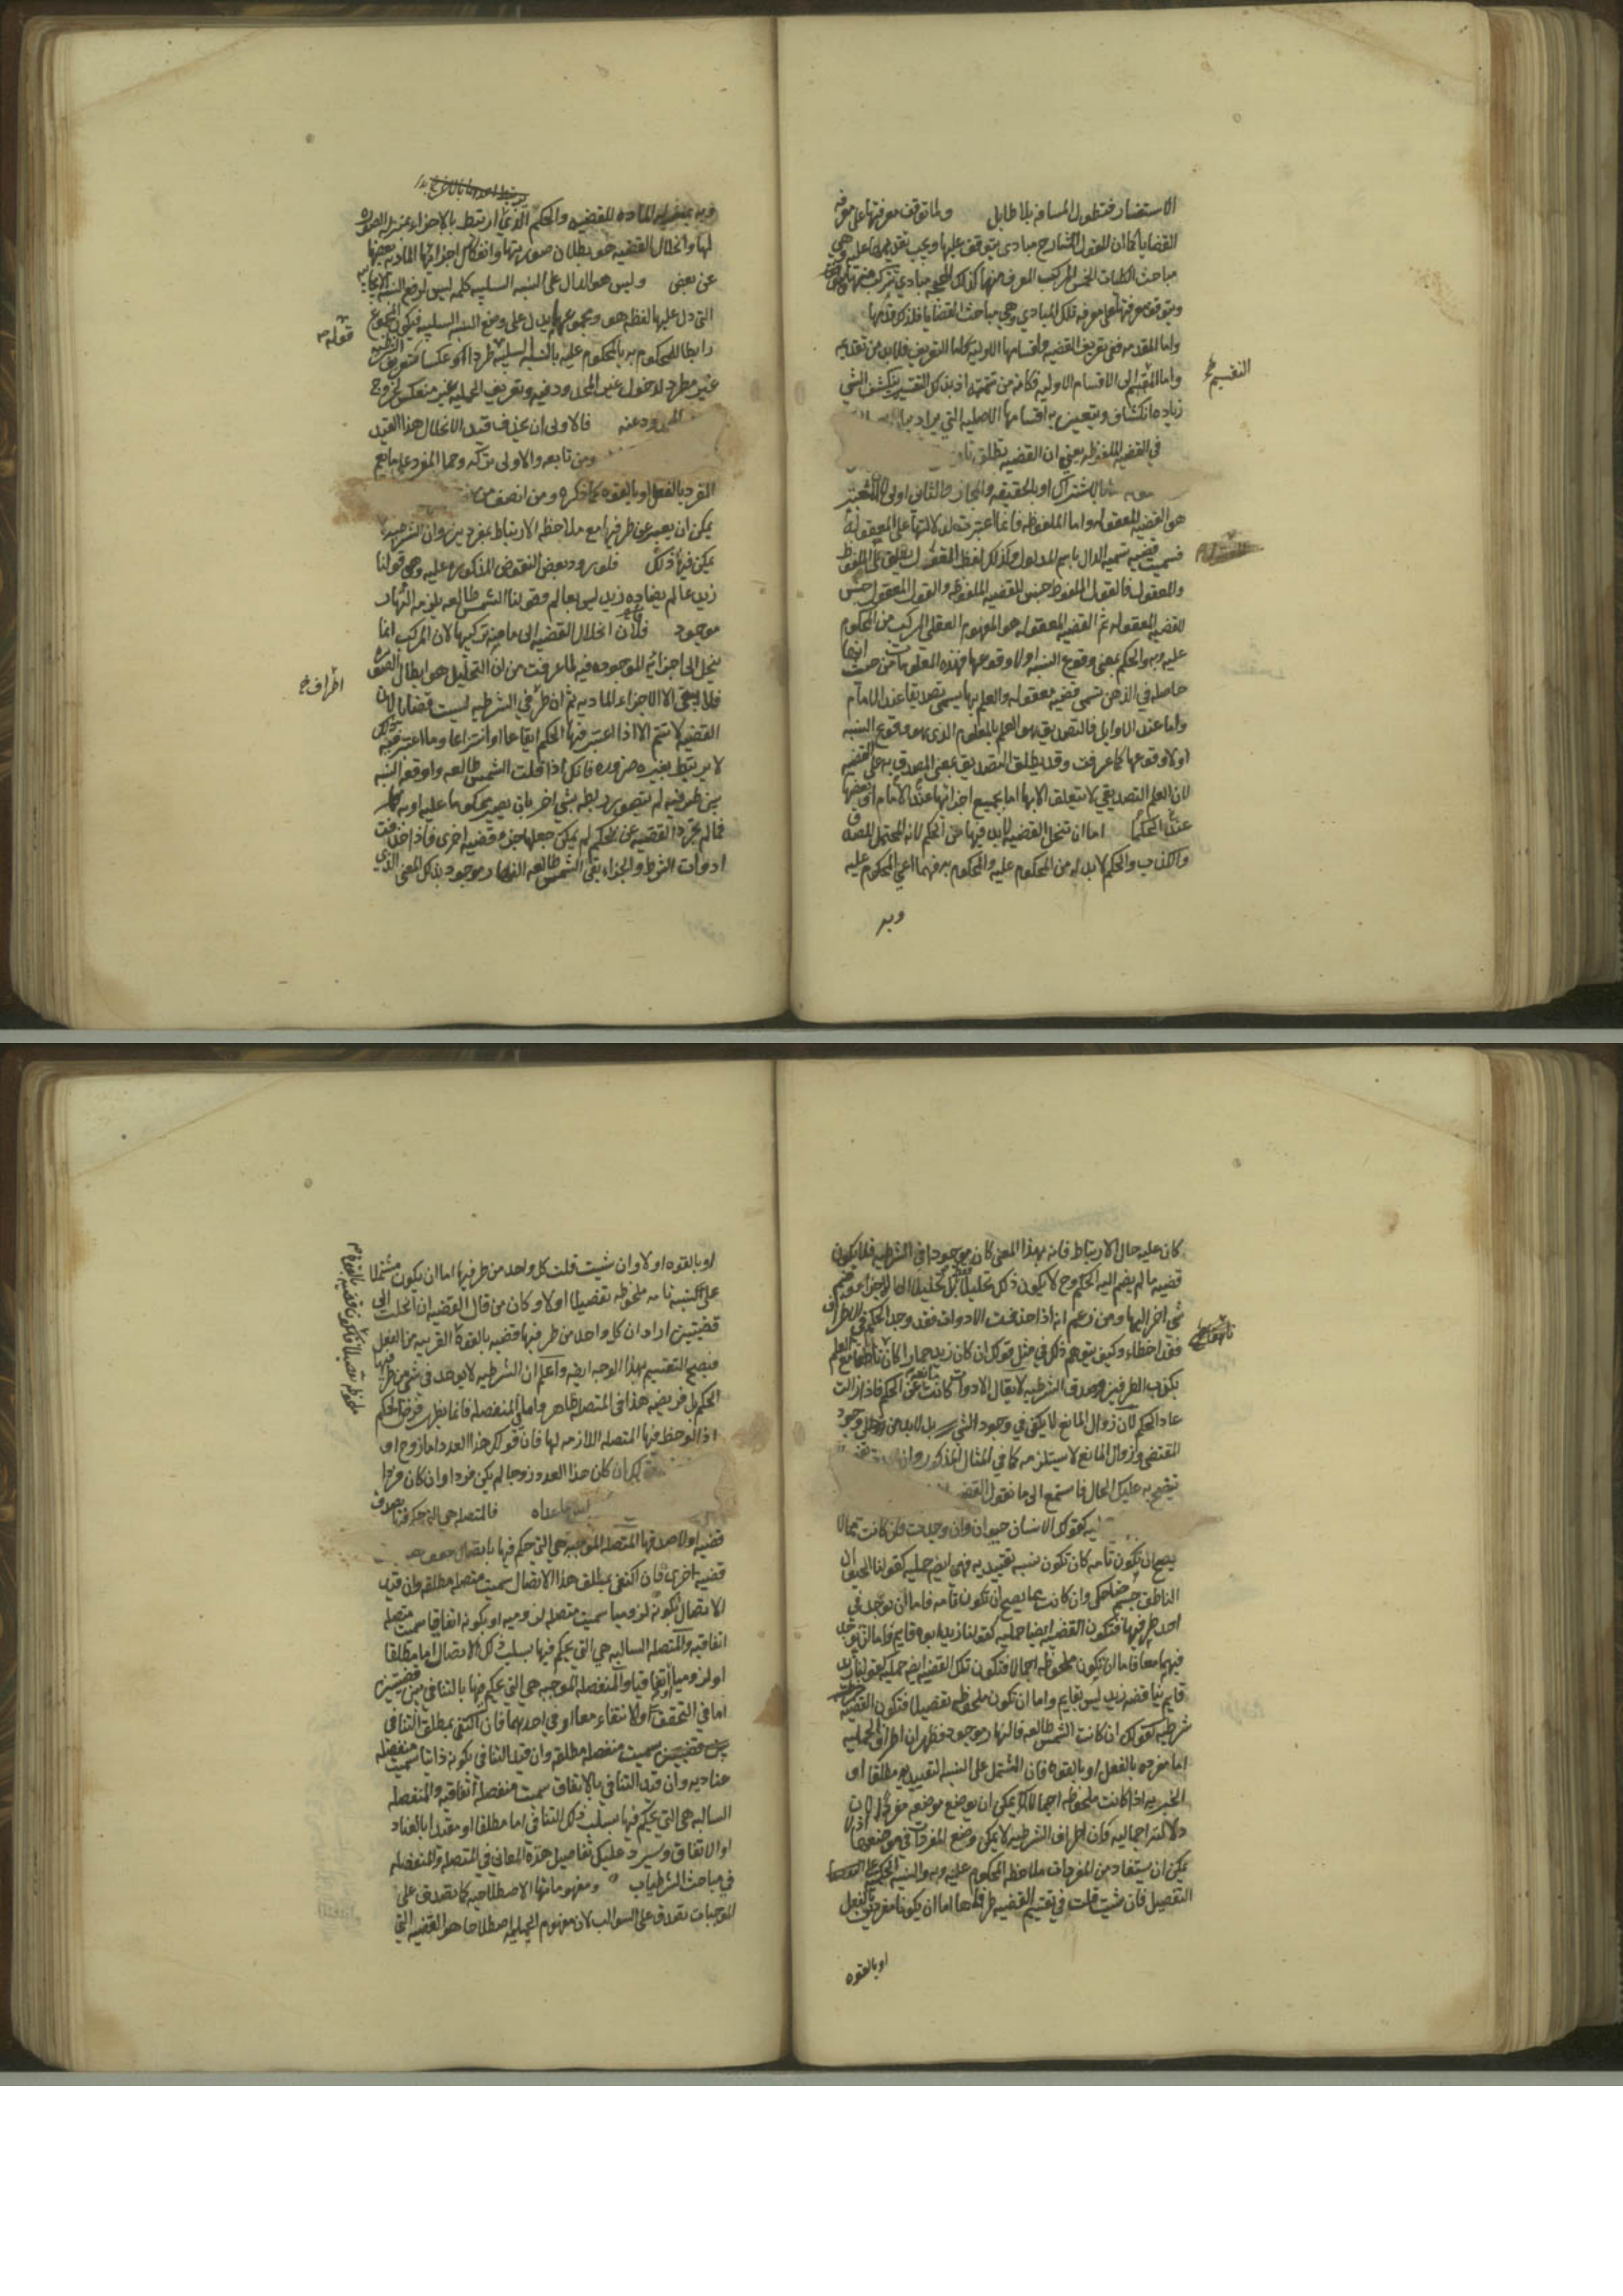 الاستفسار فتطول المسافة بلا طايل ولما توقف معرفتها على معرفة
القضايا كما ان للقول الشارح مبادي يتوقف عليها ويجب تقديمها عليه وهي
مباحث الكليات الخمس المركب المعرف منها كذلك للحجة مبادي تتركب منها
ويتوقف معرفتها على معرفة تلك المبادي وهي مباحث القضايا فلذلك قدمها
واما المقدمة ففي تعريف القضية واقسامها الاولية اما التعريف فلابد من تقديمه
واما التقسيم الى الاقسام الاولية فكانه من تتمته اذ بذلك التقسيم ينكشف الشي
زيادة انكشاف ويتعين به اقسامها الاصلية التي يراد
في القضية الملفوظة يعني ان القضية تطلق
بالاشتراك او بالحقيقة والمجاز والثاني اولى لان المعتبر
هو القضية المعقولة واما الملفوظة فانما اعتبرت لدلالتها على المعقولة
فسميت قضية تسمية الدال باسم المدلول وكذلك لفظ القول يطلق على الملفوظ
والمعقول فالقول الملفوظ جنس للقضية الملفوظة والقول المعقول جنس
للقضية المعقولة ثم القضية المعقولة هو المفهوم العقلي المركب من المحكوم
عليه وبه والحكم بمعنى وقوع النسبة اولا وقوعها فهذه المعلومات من حيث انها
حاصلة في الذهن تسمى قضية معقولة والعلم بها يسمى تصديقا عند الامام
واما عند الاوايل فالتصديق هو العلم بالمعلوم الذي هو وقوع النسبة
اولا وقوعها كما عرفت وقد يطلق التصديق بمعنى المصدق به على القضية
لان العلم التصديقي لا يتعلق الا بها اما بجميع اجزائها عند الامام او ببعضها
عند الحكما اما ان تنحل القضية لابد فيها من الحكم لانه المحتمل للصدق
والكذب والحكم لابد له من المحكوم عليه والمحكوم به فهما اعني المحكوم عليه
وبه
التقسيم
وبه بمنزلة المادة للقضية والحكم الذي ارتبط به الاجزاء بمنزلة الصورة
لها وانحلال القضية هو بطلان صورتها وانفكاك اجزائها المادية بعضها
عن بعض وليس هو الدال على النسبة السلبية كلمة ليس لرفع النسبة الايجابية
التي دل عليها لفظة هو ومجموعهما يدل على رفع النسبة السلبية فيكون المجموع
رابطا للمحكوم به بالمحكوم عليه بالنسبة السلبية طردا او عكسا لتعريف الشرطية
غير مطرد لدخول غير المحدود فيه وتعريف الحملية غير منعكس لخروج
المحدود عنه فالاولى ان يحذف قيد الانحلال هذا القيد
ومن تابعه والاولى تركه وحمل المفرد على ما يعم
المفرد بالفعل او بالقوة كما ذكره ومن انصف من
يمكن ان يعبر عن طرفيها مع ملاحظة الارتباط بمفردين وان الشرطية لا
يمكن فيها ذلك فلورود بعض النقوض المذكورة عليه وهو قولنا
زيد عالم يضاده زيد ليس بعالم وقولنا الشمس طالعة يلزمه النهار
موجود فلان انحلال القضية الى ما منه تركيبها لان المركب انما
ينحل الى اجزائه الموجودة فيه لما عرفت من ان التحليل هو ابطال الصورة
فلا يبقى الا الاجزاء المادية ثم ان طرفي الشرطية ليست قضايا لان
القضية لا تتم الا اذا اعتبر فيها الحكم ايقاعا او انتزاعا وما اعتبر فيه ذلك
لا يرتبط بغيره ضرورة فانك اذا قلت الشمس طالعة واوقعت النسبة
بين طرفيه لم يتصور ربطه بشي اخر بان يصير محكوما عليه او به
فما لم يجرد القضية عن الحكم لم يمكن جعلها جزء قضية اخرى فاذا حذفت
ادوات الشرط والجزاء بقي الشمس طالعة النهار موجود بذلك المعنى الذي
قوله
اطراف
كان عليه حال الارتباط فانه بهذا المعنى كان موجودا في الشرطية فلا يكون
قضية ما لم يضم اليه الحكم وح لا يكون ذلك تحليلا فقط بل تحليلا الى الاجزاء وضم
شي اخر اليها ومن زعم انه اذا حذفت الادوات فقد وجد الحكم في الاطراف
فقد اخطاء وكيف يتوهم ذلك في مثل قولك ان كان زيد حمارا كان ناهقا مع العلم
بكذب الطرفين وصدق الشرطية لا يقال الادوات كانت مانعة عن الحكم فاذا زالت
عاد الحكم لان زوال المانع لا يكفي في وجود الشي بل لابد من وجود
المقتضي وزوال المانع لا يستلزمه كما في المثال المذكور وان
تتضح به عليك الحال فاستمع الى ما نقول القضية
كقولك الانسان حيوان وان وجدت فان كانت مما لا
يصح ان تكون تامة كان تكون نسبة تقييدية فهي ايضا حملية كقولنا الحيوان
الناطق جسم ضاحك وان كانت مما يصح ان تكون تامة فاما ان توجد في
احد طرفيها فتكون القضية ايضا حملية كقولنا زيد ابوه قايم واما ان توجد
فيهما معا فاما ان تكون ملحوظة اجمالا فتكون تلك القضية ايضا حملية كقولنا زيد
قايم يناقضه زيد ليس بقايم واما ان تكون ملحوظة تفصيلا فتكون القضية
شرطية كقولك ان كانت الشمس طالعة فالنهار موجود فظهر ان اطراف الحملية
اما مفردة بالفعل او بالقوة فان المشتمل على النسبة التقييدية مطلقا او
الخبرية اذا كانت ملحوظة اجمالا يمكن ان يوضع موضعه مفرد لان
دلالته اجمالية فان اطراف الشرطية لا يمكن وضع المفردات في موضعها اذ لا
يمكن ان يستفاد من المفردات ملاحظة المحكوم عليه وبه والنسبة الحكمية على
التفصيل فان شيت قلت في تقسيم القضية طرفاها اما ان يكونا مفردين بالفعل
او بالقوة
ناهقا
او بالقوة اولا وان شيت قلت كل واحد من طرفيها اما ان يكون مشتملا
على نسبة تامة ملحوظة تفصيلا اولا وكان من قال القضية ان انحلت الى
قضيتين اراد ان كل واحد من طرفيها قضية بالقوة القريبة من الفعل
فيصح التقسيم بهذا الوجه ايضا واعلم ان الشرطية لا يوجد في شي من طرفيها
الحكم بل فرضه هذا في المتصلة ظاهر واما في المنفصلة فانما يظهر فرض الحكم
اذا لوحظ فيها المتصلة اللازمة لها فان قولك هذا العدد اما زوج او
ان كان هذا العدد زوجا لم يكن فردا وان كان فردا
ما عداه فالمتصلة هي التي حكم فيها بصدق
قضية اولا صدقها المتصلة الموجبة هي التي حكم فيها باتصال
قضية اخرى فان اكتفى بمطلق هذا الاتصال سميت متصلة مطلقة وان قيد
الاتصال بكونه لزوميا سميت متصلة لزومية او بكونه اتفاقيا سميت متصلة
اتفاقية والمتصلة السالبة هي التي يحكم فيها بسلب ذلك الاتصال اما مطلقا
او لزوميا او اتفاقيا والمنفصلة الموجبة هي التي يحكم فيها بالتنافي بين قضيتين
اما في التحقق والانتفاء معا او في احدهما فان اكتفى بمطلق التنافي
سميت منفصلة مطلقة وان قيد التنافي بكونه ذاتيا سميت منفصلة
عنادية وان قيد التنافي بالاتفاق سميت منفصلة اتفاقية والمنفصلة
السالبة هي التي يحكم فيها بسلب ذلك التنافي اما مطلقا او مقيدا بالعناد
او الاتفاق وسيرد عليك تفاصيل هذه المعاني في المتصلة والمنفصلة
في مباحث الشرطيات ومفهوماتها الاصطلاحية كما تصدق على
الموجبات تصدق على السوالب لان مفهوم الحملية اصطلاحا هو القضية التي